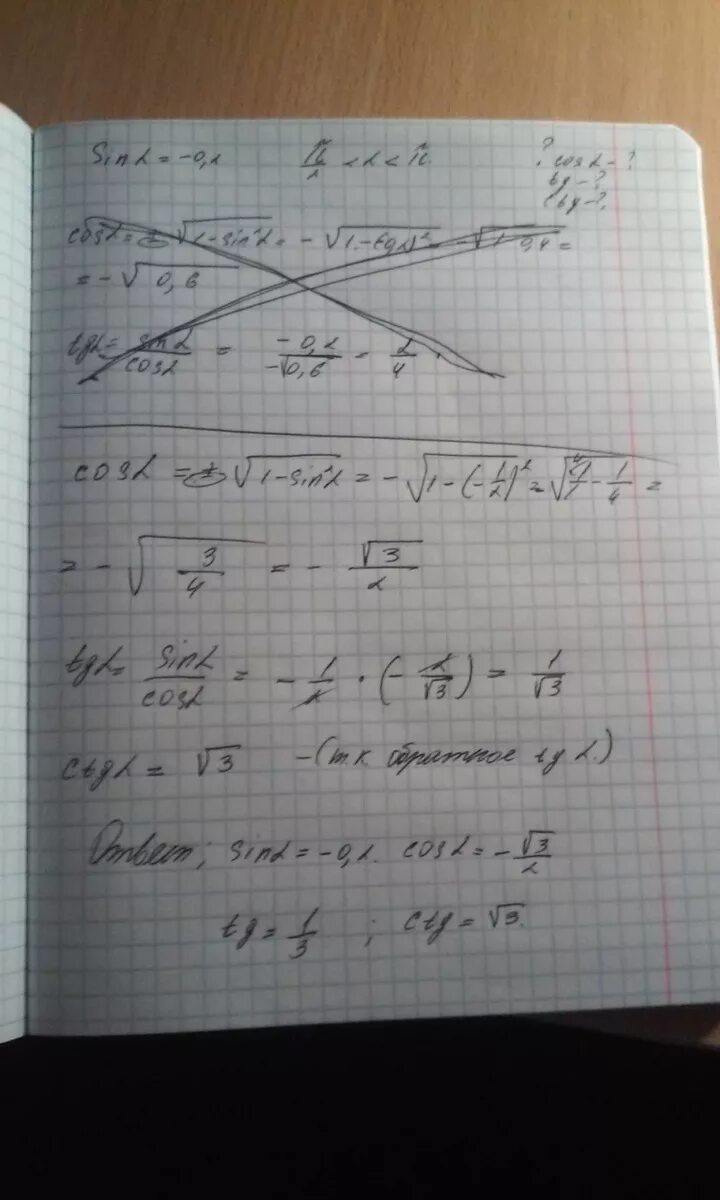 sin α = -0,2   π/2 < α < π.   ? cos α - ?
tg - ?
ctg - ?
cos α = ± √(1 - sin² α) = - √(1 - (0,2)² = - √(1 - 0,4 =
= - √0,6
tg α = sin α / cos α = -0,2 / -√0,6 = 2/4
cos α = ± √(1 - sin² α) = - √(1 - (-1/2)² = √(4/1 - 1/4 =
= - √(3/4) = - √3/2
tg α = sin α / cos α = - 1/2 · (- 2/√3) = 1/√3
ctg α = √3 - (т.к. обратное tg α.)
Ответ; sin α = -0,2. cos α = - √3/2
tg = 1/3 ; ctg = √3.